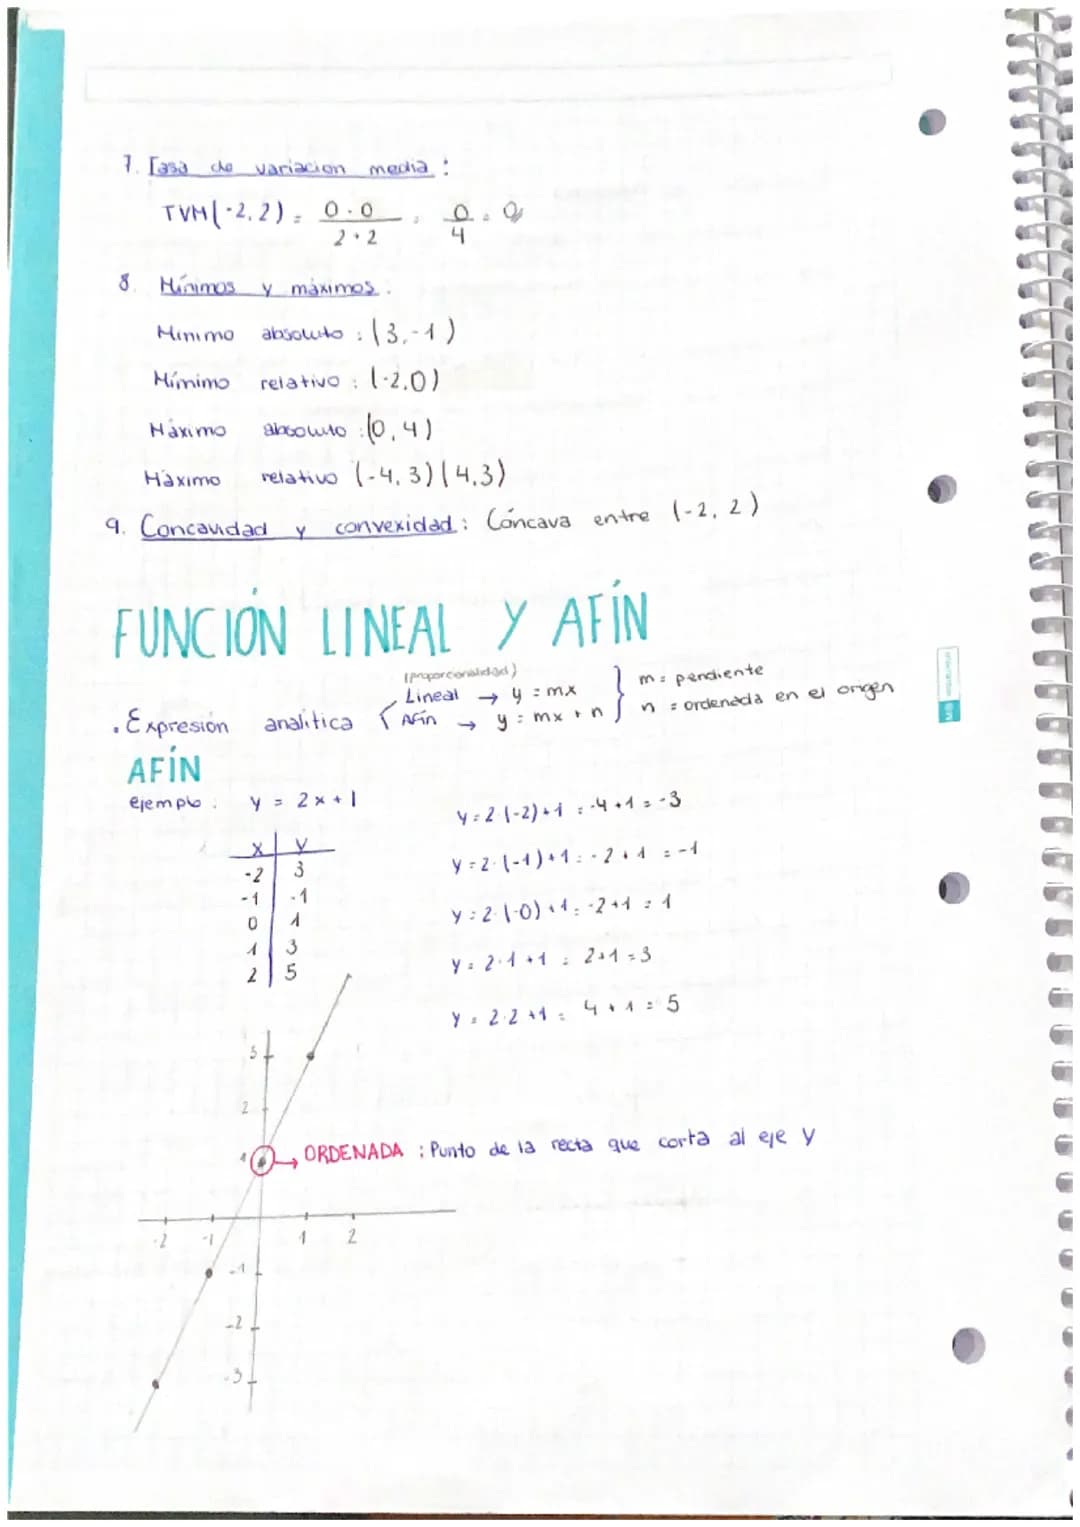 7. Tasa de variacion media :
TVM(-2,2) = 0-0 / 2+2 = 0/4 = 0
8. Mínimos y máximos :
Minimo absoluto : (3,-1)
Mímimo relativo : (-2,0)
Máximo absoluto : (0,4)
Máximo relativo (-4,3) (4,3)
9. Concavidad y convexidad : Cóncava entre (-2, 2)
FUNCIÓN LINEAL Y AFÍN
(proporcionalidad)
· Expresión analítica { Lineal → y = mx
Afín → y = mx + n }
m = pendiente
n = ordenada en el origen
AFÍN
ejemplo : y = 2x + 1
x | y
-2 | 3
-1 | -1
0 | 1
1 | 3
2 | 5
y = 2·(-2)+1 = -4+1 = -3
y = 2·(-1)+1 = -2+1 = -1
y = 2·(-0)+1 = -2+1 = 1
y = 2·1+1 = 2+1 = 3
y = 2·2+1 = 4+1 = 5
3
2
1
→ ORDENADA : Punto de la recta que corta al eje y
-2 -1 1 2
-1
-2
-3